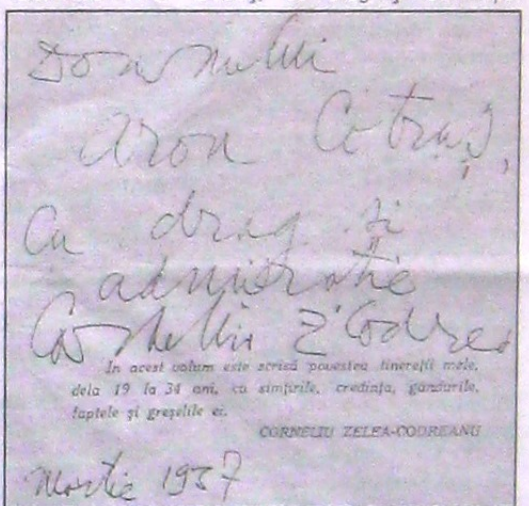 Domnului
Aron Cotruș,
Cu drag și
admirație
Corneliu Z. Codreanu
In acest volum este scrisă povestea tinereții mele,
dela 19 la 34 ani, cu simțirile, credința, gândurile,
faptele și greșelile ei.
CORNELIU ZELEA-CODREANU
Martie 1937